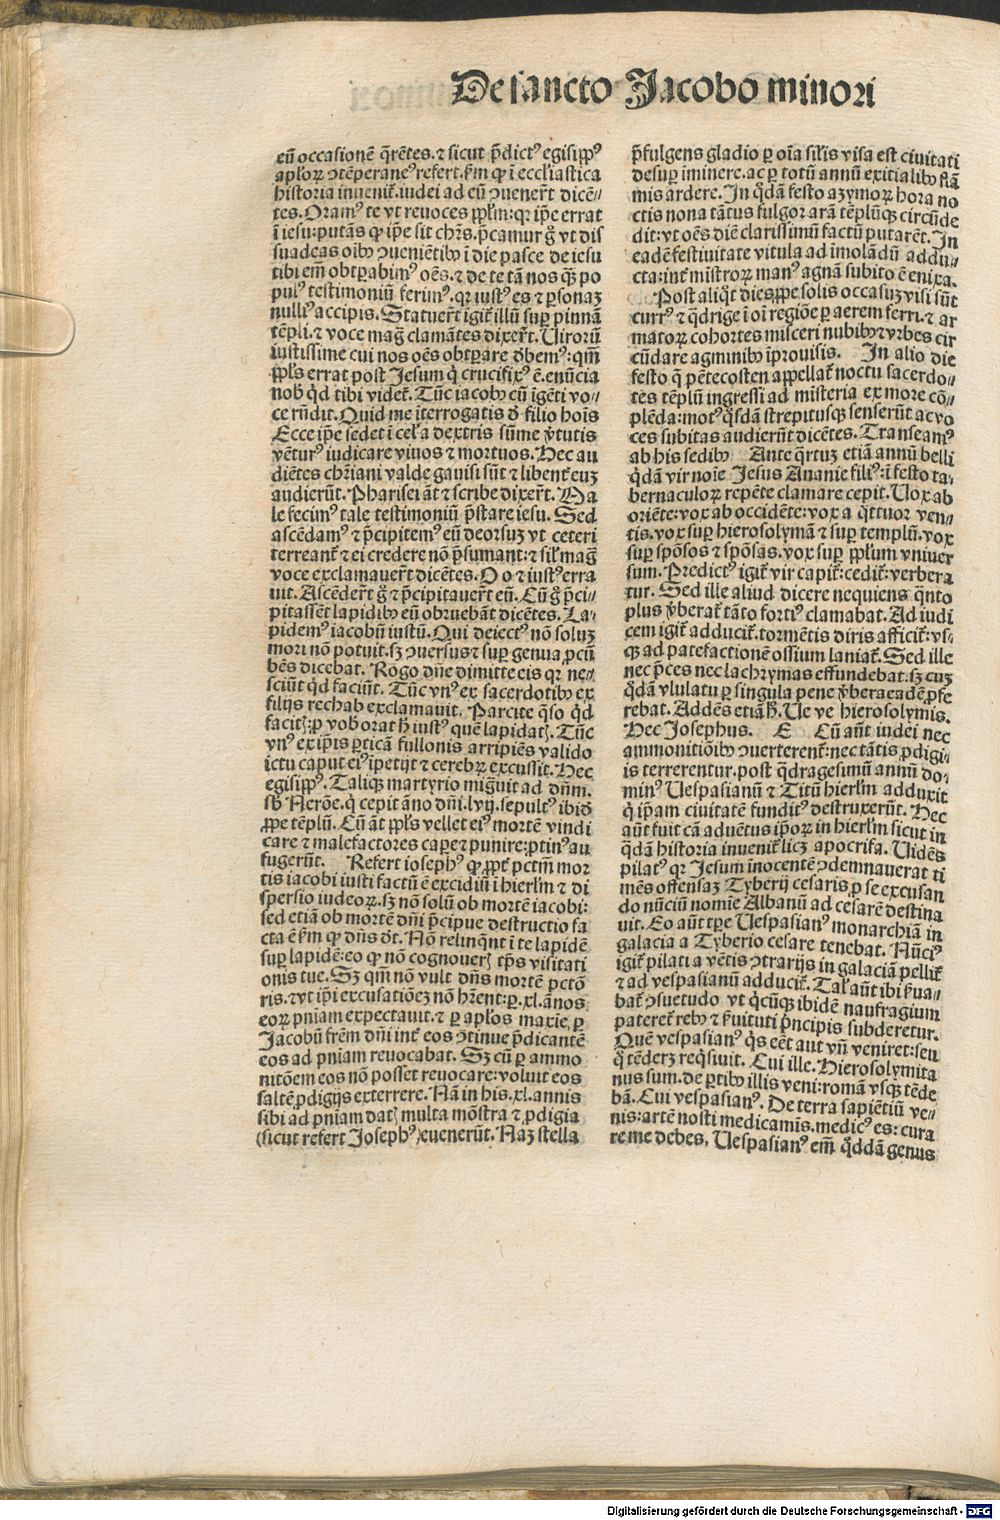 De sancto Jacobo minori
eū occasionē q̄rētes. ⁊ sicut p̄dictꝰ egisippꝰ
apl'oꝝ ↄtēperaneꝰ refert. ẜm ꝙ ī eccl'iastica
historia inuenit᷑. iudei ad eū ↄuener̄t dicē⸗
tes. Oramꝰ te vt reuoces ppl'm: qꝛ ip̄e errat
ī iesu: putās ꝙ ip̄e sit chr̄s. p̄camur g̊ vt dis
suadeas oībꝰ ↄueniētibꝰ ī die pasce de iesu
tibi em̄ obtꝑabimꝰ oēs. ⁊ de te tā nos q̄ꝫ po
pulꝰ testimoniū ferimꝰ. qꝛ iustꝰ es ⁊ ꝑsonaꝫ
nulliꝰ accipis. Statuer̄t igit᷑ illū suꝑ pinnā
tēpli. ⁊ voce maḡ clamātes dixer̄t. Uiroruꝫ
iustissime cui nos oēs obtꝑare debemꝰ: qm̄
ppl's errat post Jesum q̇ crucifixꝰ ē. enūcia
nob̄ qd̄ tibi videt᷑. Tūc iacobꝰ cū īgēti vo⸗
ce rn̄dit. Quid me īterrogatis de filio hoīs
Ecce ip̄e sedet ī cel' a dextris sūme v̄tutis
vētur᷒ iudicare viuos ⁊ mortuos. Hec au
diētes chr̄iani valde gauisi sūt ⁊ libent᷑ euꝫ
audierūt. Pharisei āt ⁊ scribe dixer̄t. Ma
le fecimꝰ tale testimoniū p̄stare iesu. Sed
ascēdamꝰ ⁊ p̄cipitemꝰ eū deorsuꝫ vt ceteri
terreant᷑ ⁊ ei credere nō p̄sumant: ⁊ sil' maḡ
voce exclamauer̄t dicētes. O o ⁊ iustꝰ erra
uit. Ascēder̄t g̊ ⁊ p̄cipitauer̄t eū. Cū g̊ p̄ci⸗
pitassēt lapidibꝰ eū obruebāt dicētes. La⸗
pidemꝰ iacobū iustū. Qui deiectꝰ nō soluꝫ
mori nō potuit. sꝫ ↄuersus ⁊ suꝑ genua ꝓcū
bēs dicebat. Rogo dn̄e dimitte eis qꝛ ne⸗
sciūt qd̄ faciūt. Tūc vnꝰ ex sacerdotibꝰ ex
filijs rechab exclamauit. Parcite q̄so qd̄
facitꝭ: ꝓ vob̄ orat hˀ iustꝰ quē lapidatꝭ. Tūc
vnꝰ ex ip̄is ꝑticā fullonis arripiēs valido
ictu caput eiꝰ īpetijt ⁊ cerebꝝ excussit. Hec
egisippꝰ. Taliqꝫ martyrio migͣuit ad dn̄m.
sb̄ Nerōe. q̇ cepit āno dn̄i. lvij. sepultꝰ ibid̄
ꝓpe tēplū. Cū āt ppl's vellet eiꝰ mortē vindi
care ⁊ malefactores caꝑe ⁊ punire: ꝓtinꝰ au
fugerūt. Refert iosephꝰ ꝙ ꝓpt᷑ pctm̄ mor
tis iacobi iusti factū ē excidiū ī hierl'm ⁊ di
spersio iudeoꝝ. sꝫ nō solū ob mortē iacobi:
sed etiā ob mortē dn̄i p̄cipue destructio fa
cta ē ẜm ꝙ dn̄s dt̄. Nō relinqn̄t ī te lapidē
suꝑ lapidē: eo ꝙ nō cognouerꝭ tp̄s visitati
onis tue. Sꝫ qm̄ nō vult dn̄s mortē pctō
ris. ⁊ vt ip̄i excusatiōeꝫ nō hr̄ent: ꝑ. xl. ānos
eoꝝ pn̄iam expectauit. ⁊ ꝑ apl'os maxīe ꝑ
Jacobū fr̄em dn̄i int᷑ eos ↄtinue p̄dicantē
eos ad pn̄iam reuocabat. Sꝫ cū ꝑ ammo
nitōem eos nō posset reuocare: voluit eos
saltē ꝓdigijs exterrere. Nā in his. xl. annis
sibi ad pn̄iam datꝭ multa mōstra ⁊ ꝓdigia
(sicut refert Josephꝰ) euenerūt. Naꝫ stella
p̄fulgens gladio ꝑ oīa sil'is visa est ciuitati
desuꝑ iminere. ac ꝑ totū annū exitialibꝰ flā
mis ardere. In qͦdā festo azymoꝝ hora no
ctis nona tātus fulgor arā tēplūqꝫ circūde
dit: vt oēs diē clarissimū factū putarēt. In
eadē festiuitate vitula ad īmolādū addu⸗
cta: int᷑ mīstroꝝ manꝰ agnā subito ē enixa.
Post aliqͦt dies ꝓpe solis occasuꝫ visi sūt
currꝰ ⁊ qͣdrige ī oī regiōe ꝑ aerem ferri. ⁊ ar
matoꝝ cohortes misceri nubibꝰ ⁊ vrbes cir
cūdare agminibꝰ īprouisis. In alio die
festo q̄ pētecosten appellat᷑ noctu sacerdo⸗
tes tēplū ingressi ad misteria ex more cō⸗
plēda: motꝰ qͦsdā strepitusqꝫ senserūt ac vo
ces subitas audierūt dicētes. Transeamꝰ
ab his sedibꝰ Ante qͣrtuꝫ etiā annū belli
qͥdā vir noīe Jesus Ananie filiꝰ: ī festo ta⸗
bernaculoꝝ repēte clamare cepit. Uox ab
oriēte: vox ab occidēte: vox a qͣttuor ven⸗
tis. vox suꝑ hierosolymā ⁊ suꝑ templū. vox
suꝑ spōsos ⁊ spōsas. vox suꝑ ppl'um vniuer
sum. Predictꝰ igit᷑ vir capit᷑: cedit᷑: verbera
tur. Sed ille aliud dicere nequiens qͣnto
plus v̄berat᷑ tāto fortiꝰ clamabat. Ad iudi
cem igit᷑ adducit᷑. tormētis diris afficit᷑: vs⸗
qꝫ ad patefactionē ossium laniat᷑. Sed ille
nec p̄ces nec lachrymas effundebat. sꝫ cuꝫ
qͦdā vlulatu ꝑ singula pene v̄bera eadē ꝓfe
rebat. Addēs etiā hˀ. Ue ve hierosolymis.
Hec Josephus. E Cū aūt iudei nec
ammonitiōibꝰ ↄuerterent᷑: nec tātis ꝓdigi⸗
is terrerentur. post qͣdragesimū annū do⸗
minꝰ Uespasianū ⁊ Titū hierl'm adduxit
q̇ ip̄am ciuitatē funditꝰ destruxerūt. Hec
aūt fuit cā aduētus ip̄oꝝ in hierl'm sicut in
qͣdā historia inuenit᷑ licꝫ apocrifa. Uidēs
pilatꝰ qꝛ Jesum inocentē ↄdemnauerat ti
mēs offensaꝫ Tyberij cesaris ꝓ se excusan
do nūciū nomīe Albanū ad cesarē destina
uit. Eo aūt tꝑe Uespasianꝰ monarchiā in
galacia a Tyberio cesare tenebat. Nūciꝰ
igit᷑ pilati a vētis ↄtrarijs in galaciā pellit᷑
⁊ ad vespasianū adducit᷑. Tal' aūt ibi ẜua⸗
bat᷑ ↄsuetudo vt qͥcūqꝫ ibidē naufragium
pateret᷑ rebꝰ ⁊ ẜuituti p̄ncipis subderetur.
Quē vespasianꝰ qͥs eēt aut vn̄ veniret: seu
qͦ tēderꝫ reqͥsiuit. Cui ille. Hierosolymita
nus sum. de ꝑtibꝰ illis veni: romā vsqꝫ tēde
bā. Cui vespasianꝰ. De terra sapiētiū ve⸗
nis: artē nosti medicamīs. medicꝰ es: cura
re me debes. Uespasianꝰ em̄ qͦddā genus
Digitalisierung gefördert durch die Deutsche Forschungsgemeinschaft - DFG